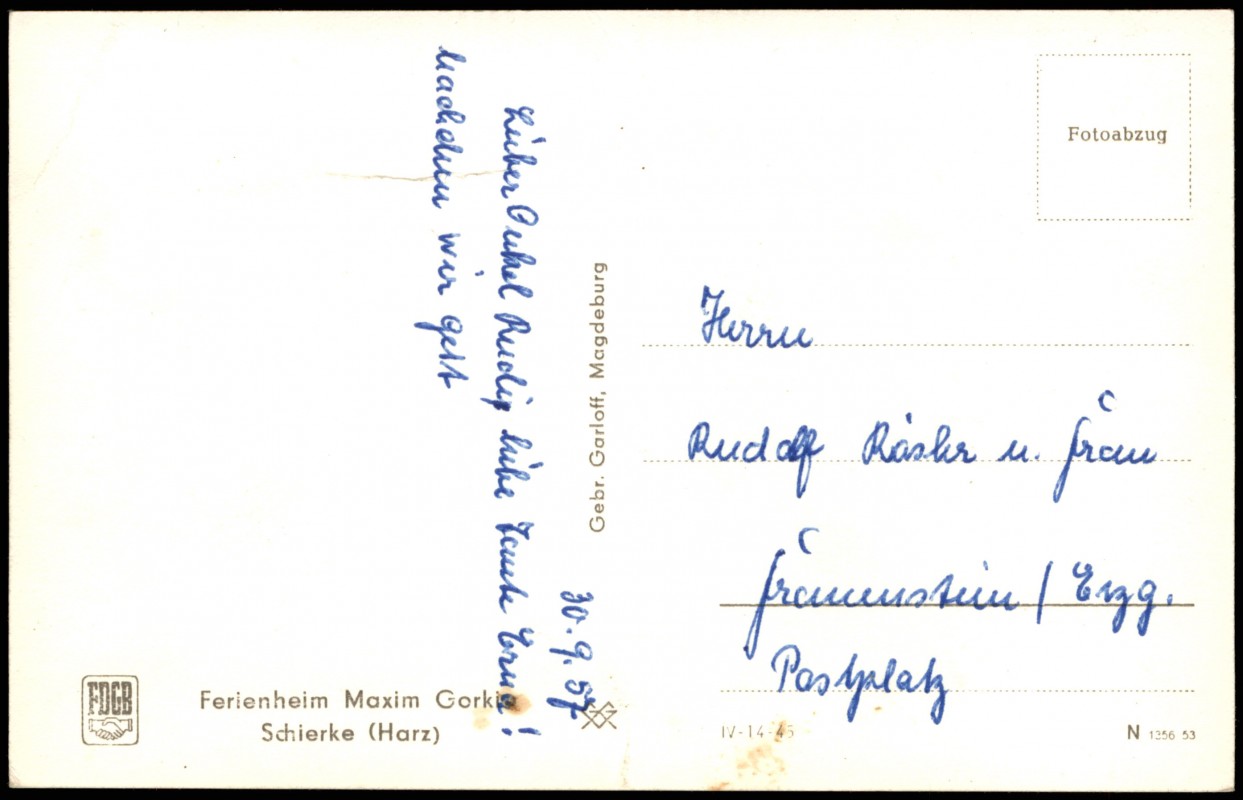 30.9.57
Lieber Onkel Rudi, liebe Tante Erna!
Nachdem wir
Gebr. Garloff, Magdeburg
FDGB
Ferienheim Maxim Gorki
Schierke (Harz)
Fotoabzug
Herrn
Rudolf u. Frau
Frauenstein / Erzg.
Postplatz
IV-14-45
N 1356 53